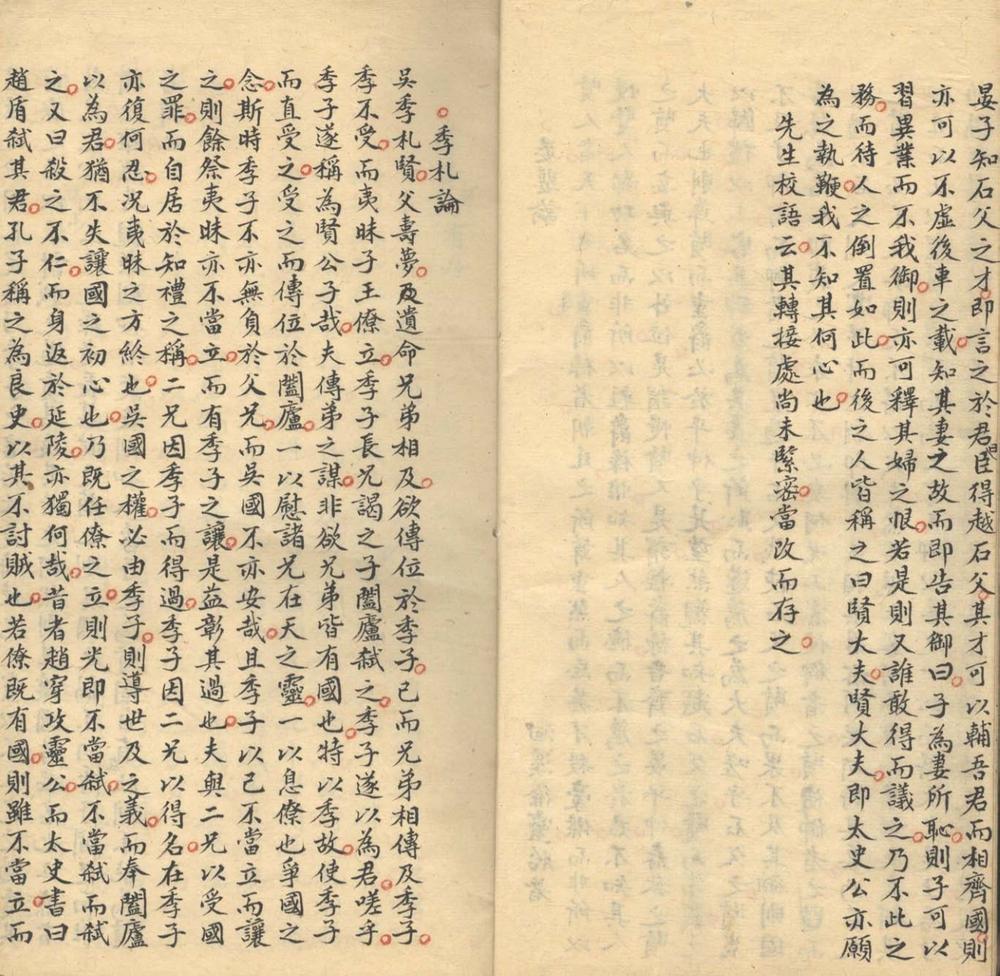 晏子知石父之才即言之於君曰臣得越石父其才可以輔吾君而相齊國則
亦可以不虛後車之載知其妻之故而即告其御曰子為妻所恥則子可以
習異業而不我御則亦可釋其婦之恨若是則又誰敢得而議之乃不此之
務而待人之倒置如此而後之人皆稱之曰賢大夫賢大夫即太史公亦願
為之執鞭我不知其何心也
先生校語云其轉接處尚未緊密當改而存之
季札論
吳季札賢父壽夢及遺命兄弟相及欲傳位於季子已而兄弟相傳及季子
季不受而夷昧子王僚立季子長兄謁之子闔廬弒之季子遂以為君嗟乎
季子遂稱為賢公子哉夫傳弟之謀非欲兄弟皆有國也特以季故使季子
而直受之受之而傳位於闔廬一以慰諸兄在天之靈一以息僚也爭國之
念斯時季子不亦無負於父兄而吳國不亦安哉且季子以己不當立而讓
之則餘祭夷昧亦不當立而有季子之讓是益彰其過也夫與二兄以受國
之罪而自居於知禮之稱二兄因季子而得過季子因二兄以得名在季子
亦復何忍况夷昧之方終也吳國之權必由季子則導世及之義而奉闔廬
以為君猶不失讓國之初心也乃既任僚之立則光即不當弒不當弒而弒
之又曰殺之不仁而身返於延陵亦獨何哉昔者趙穿攻靈公而太史書曰
趙盾弒其君孔子稱之為良史以其不討賊也若僚既有國則雖不當立而